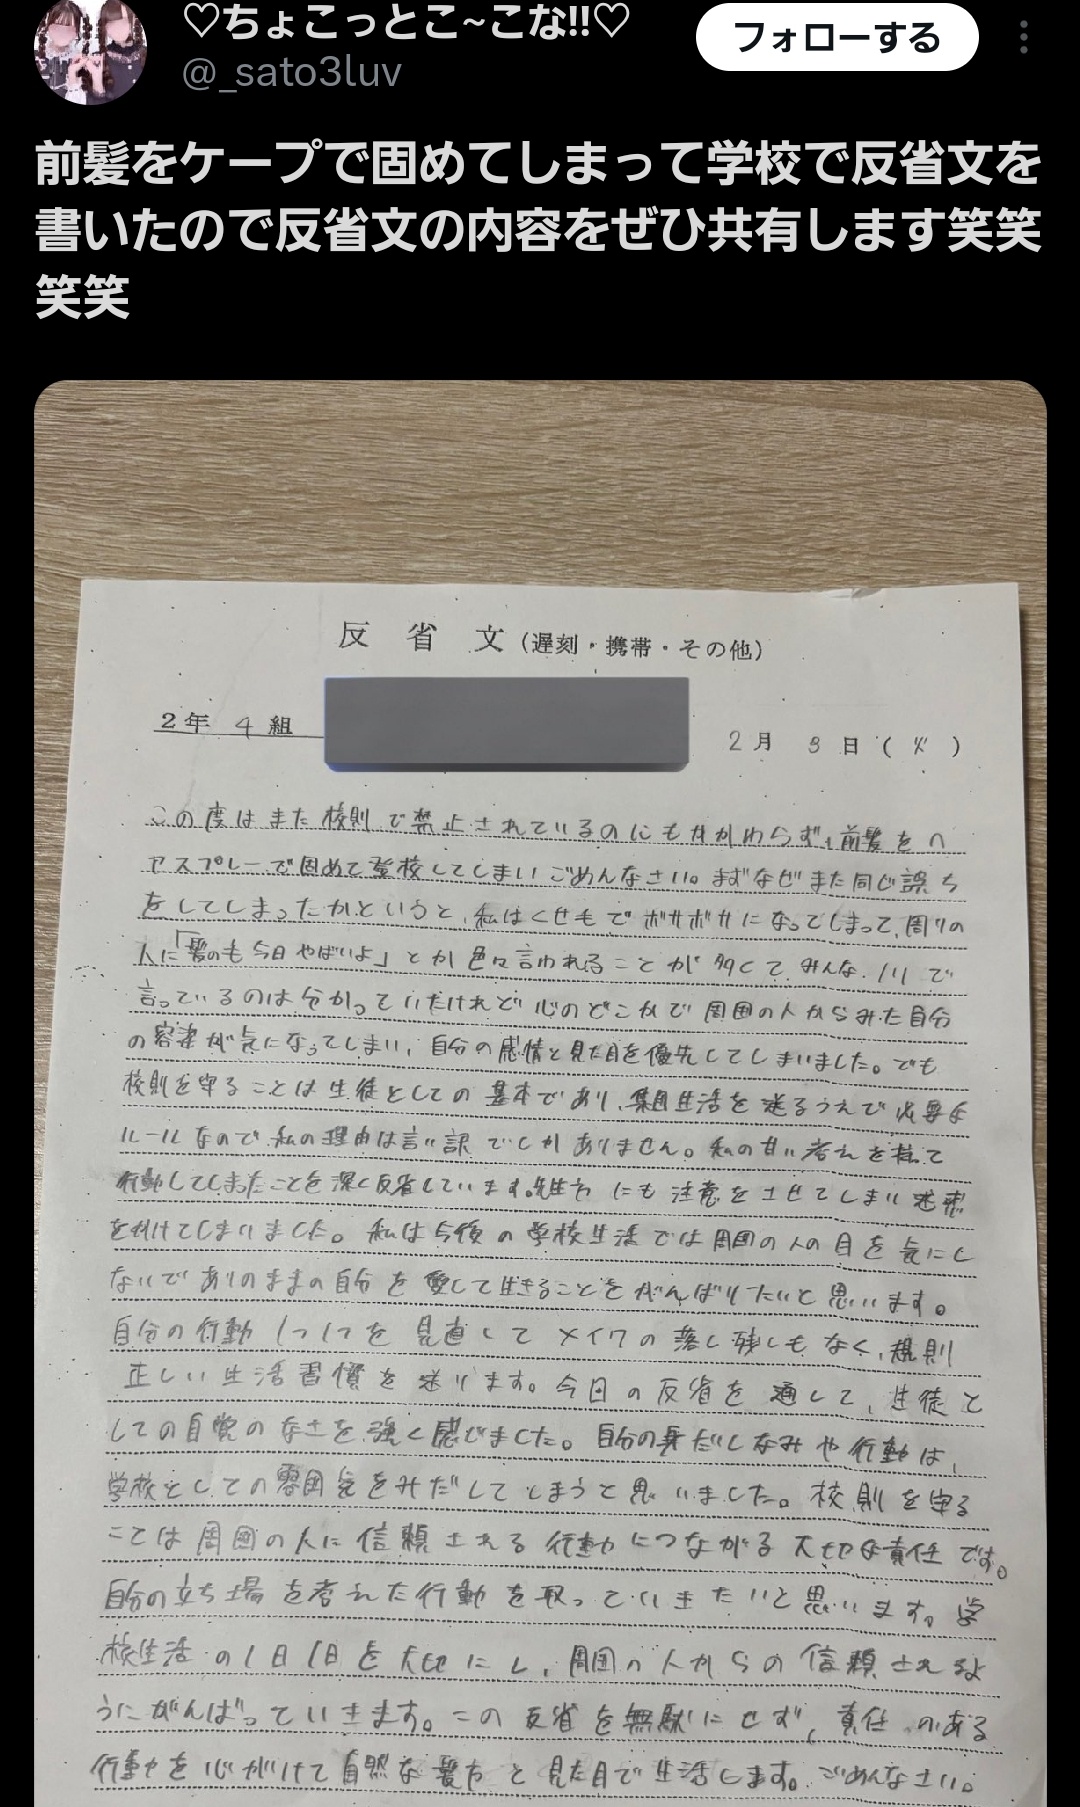 ♡ちょこっとこ~こな!!♡
フォローする
@_sato3luv
前髪をケープで固めてしまって学校で反省文を
書いたので反省文の内容をぜひ共有します笑笑
笑笑
反 省 文 (遅刻・携帯・その他)
2年 4 組
2月 3日(火)
この度はまた校則で禁止されているのにもかかわらず、前髪をヘ
アスプレーで固めて登校してしまいごめんなさい。まずなぜまた同じ誤ち
をしてしまったかというと、私はくせもでボサボサになってしまって、周りの
人に「髪のも今日やばいよ」とか色々言われることが多くて、みんな、ノリで
言っているのは分かっていたけれど心のどこかで周囲の人からみた自分
の容姿が気になってしまい、自分の感情と見た目を優先してしまいました。でも
校則を守ることは生徒としての基本であり、集団生活を送るうえで必要な
ルールなので、私の理由は言い訳でしかありません。私の甘い考えを持って
行動してしまたことを深く反省しています。先生方にも注意をさせてしまい迷惑
をかけてしまいました。私は今後の学校生活では周囲の人の目を気にし
ないでありのままの自分を愛して生きることをがんばりたいと思います。
自分の行動1つ1つを見直してメイクの落し残しもなく、規則
正しい生活習慣を送ります。今日の反省を通して、生徒と
しての自覚のなさを強く感じました。自分の身だしなみや行動は、
学校としての雰囲気をみだしてしまうと思いました。校則を守る
ことは周囲の人に信頼される行動につながる大切な責任です。
自分の立ち場を考えた行動を取っていきたいと思います。学
校生活の1日1日を大切にし、周囲の人からの信頼されるよ
うにがんばっていきます。この反省を無駄にせず、責任のある
行動を心がけて自然な髪方と見た目で生活します。ごめんなさい。